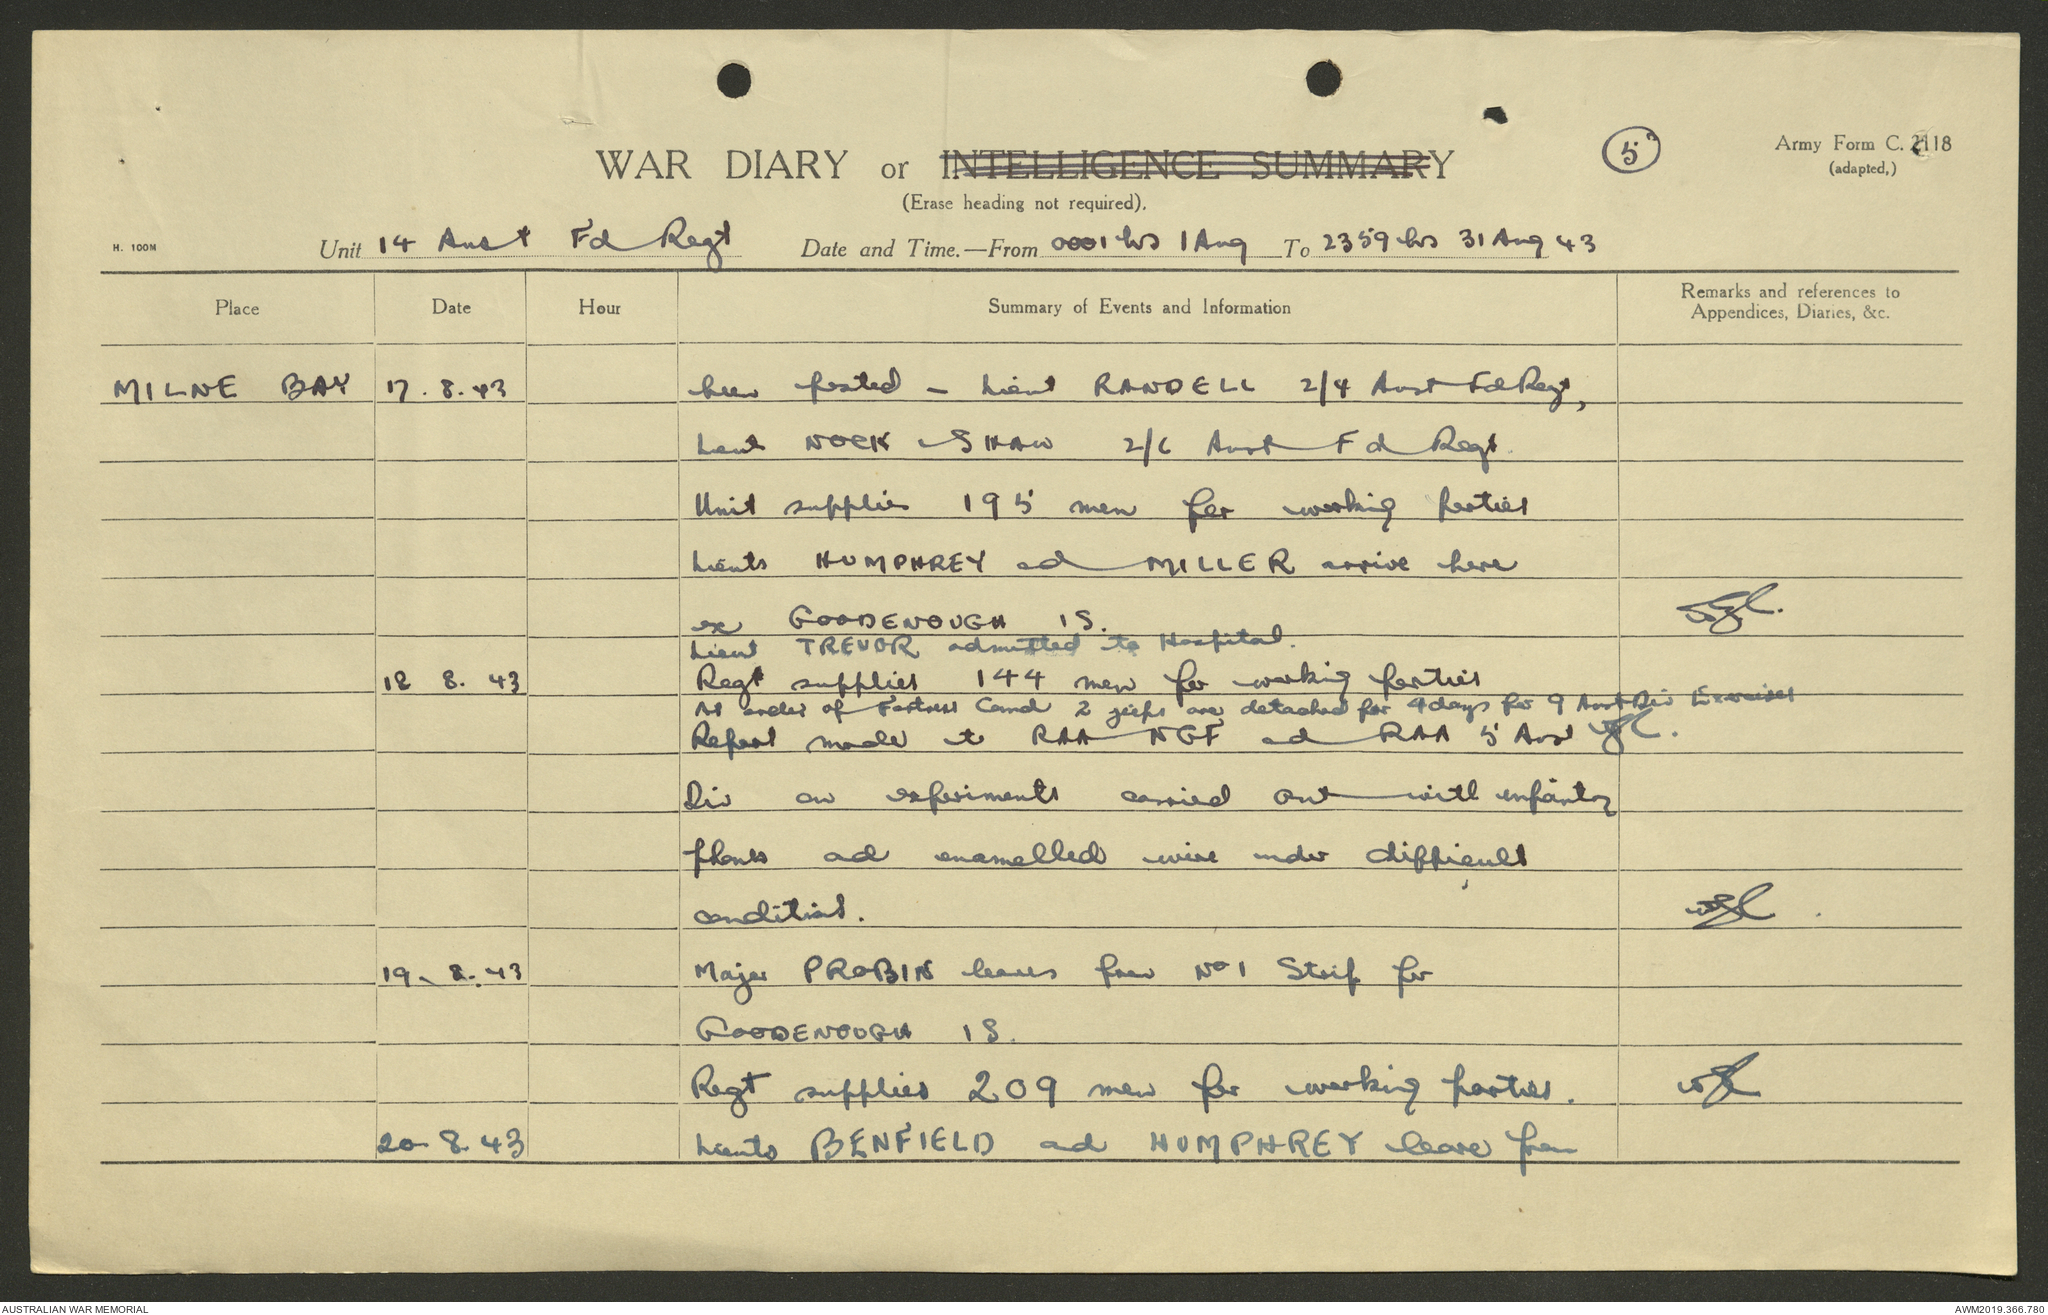 WAR DIARY or INTELLIGENCE SUMMARY
(Erase heading not required).
5
Army Form C. 2118
(adapted,)
H. 100M
Unit 14 Aust Fd Regt Date and Time.—From 0001 hrs 1 Aug To 2359 hrs 31 Aug 43
Place Date Hour Summary of Events and Information Remarks and references to
Appendices, Diaries, &c.
MILNE BAY 17.8.43 been posted - Lieut RANDELL 2/4 Aust Fd Regt,
Lieut NOCK SHAW 2/6 Aust Fd Regt.
Unit supplies 195 men for working parties
Lieuts HUMPHREY ad MILLER arrive here
ex GOODENOUGH IS.
Lieut TREVOR admitted to Hospital.
18 8.43 Regt supplies 144 men for working parties
At order of Fortress Comd 2 jeeps are detached for 4 days for 9 Aust Div Exercises
Report made to RAA NGF ad RAA 5 Aust
Div on experiments carried out with infantry
phones ad enamelled wire under difficult
conditions.
19.8.43 Major PROBIN leaves from No 1 Strip for
GOODENOUGH IS.
Regt supplies 209 men for working parties.
20.8.43 Lieuts BENFIELD ad HUMPHREY leave from
AUSTRALIAN WAR MEMORIAL
AWM2019.366.780